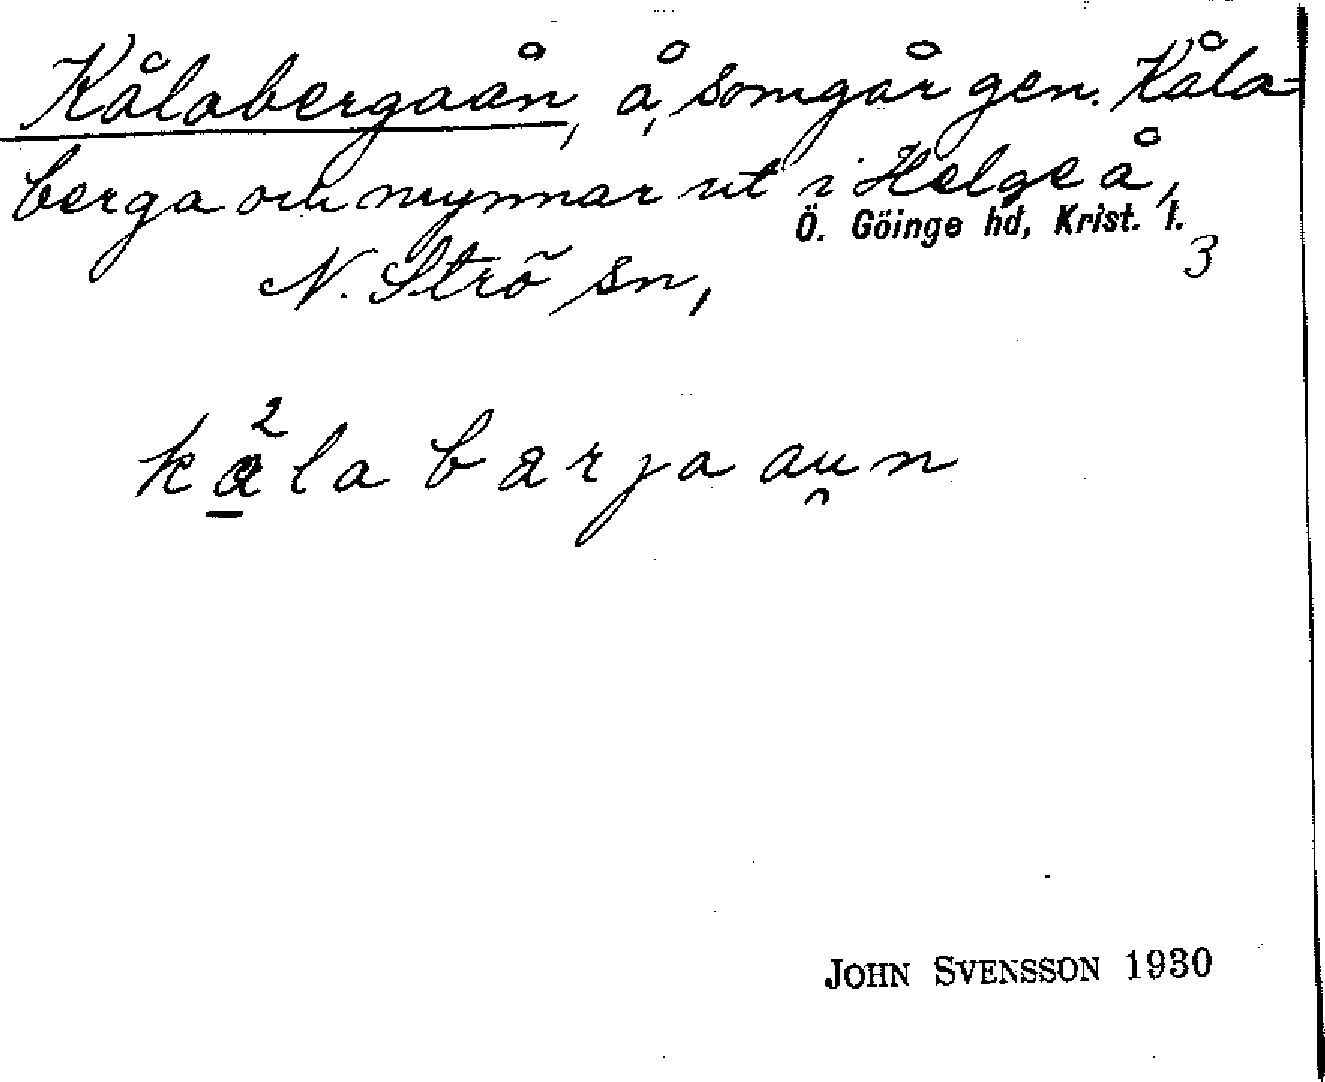 Kålabergaån, å, som går gen. Kåla=
berga och mynnar ut i Helge å,
Ö. Göinge hd, Krist. l.
N. Strö sn, 3
kå²labarjaaun
JOHN SVENSSON 1930